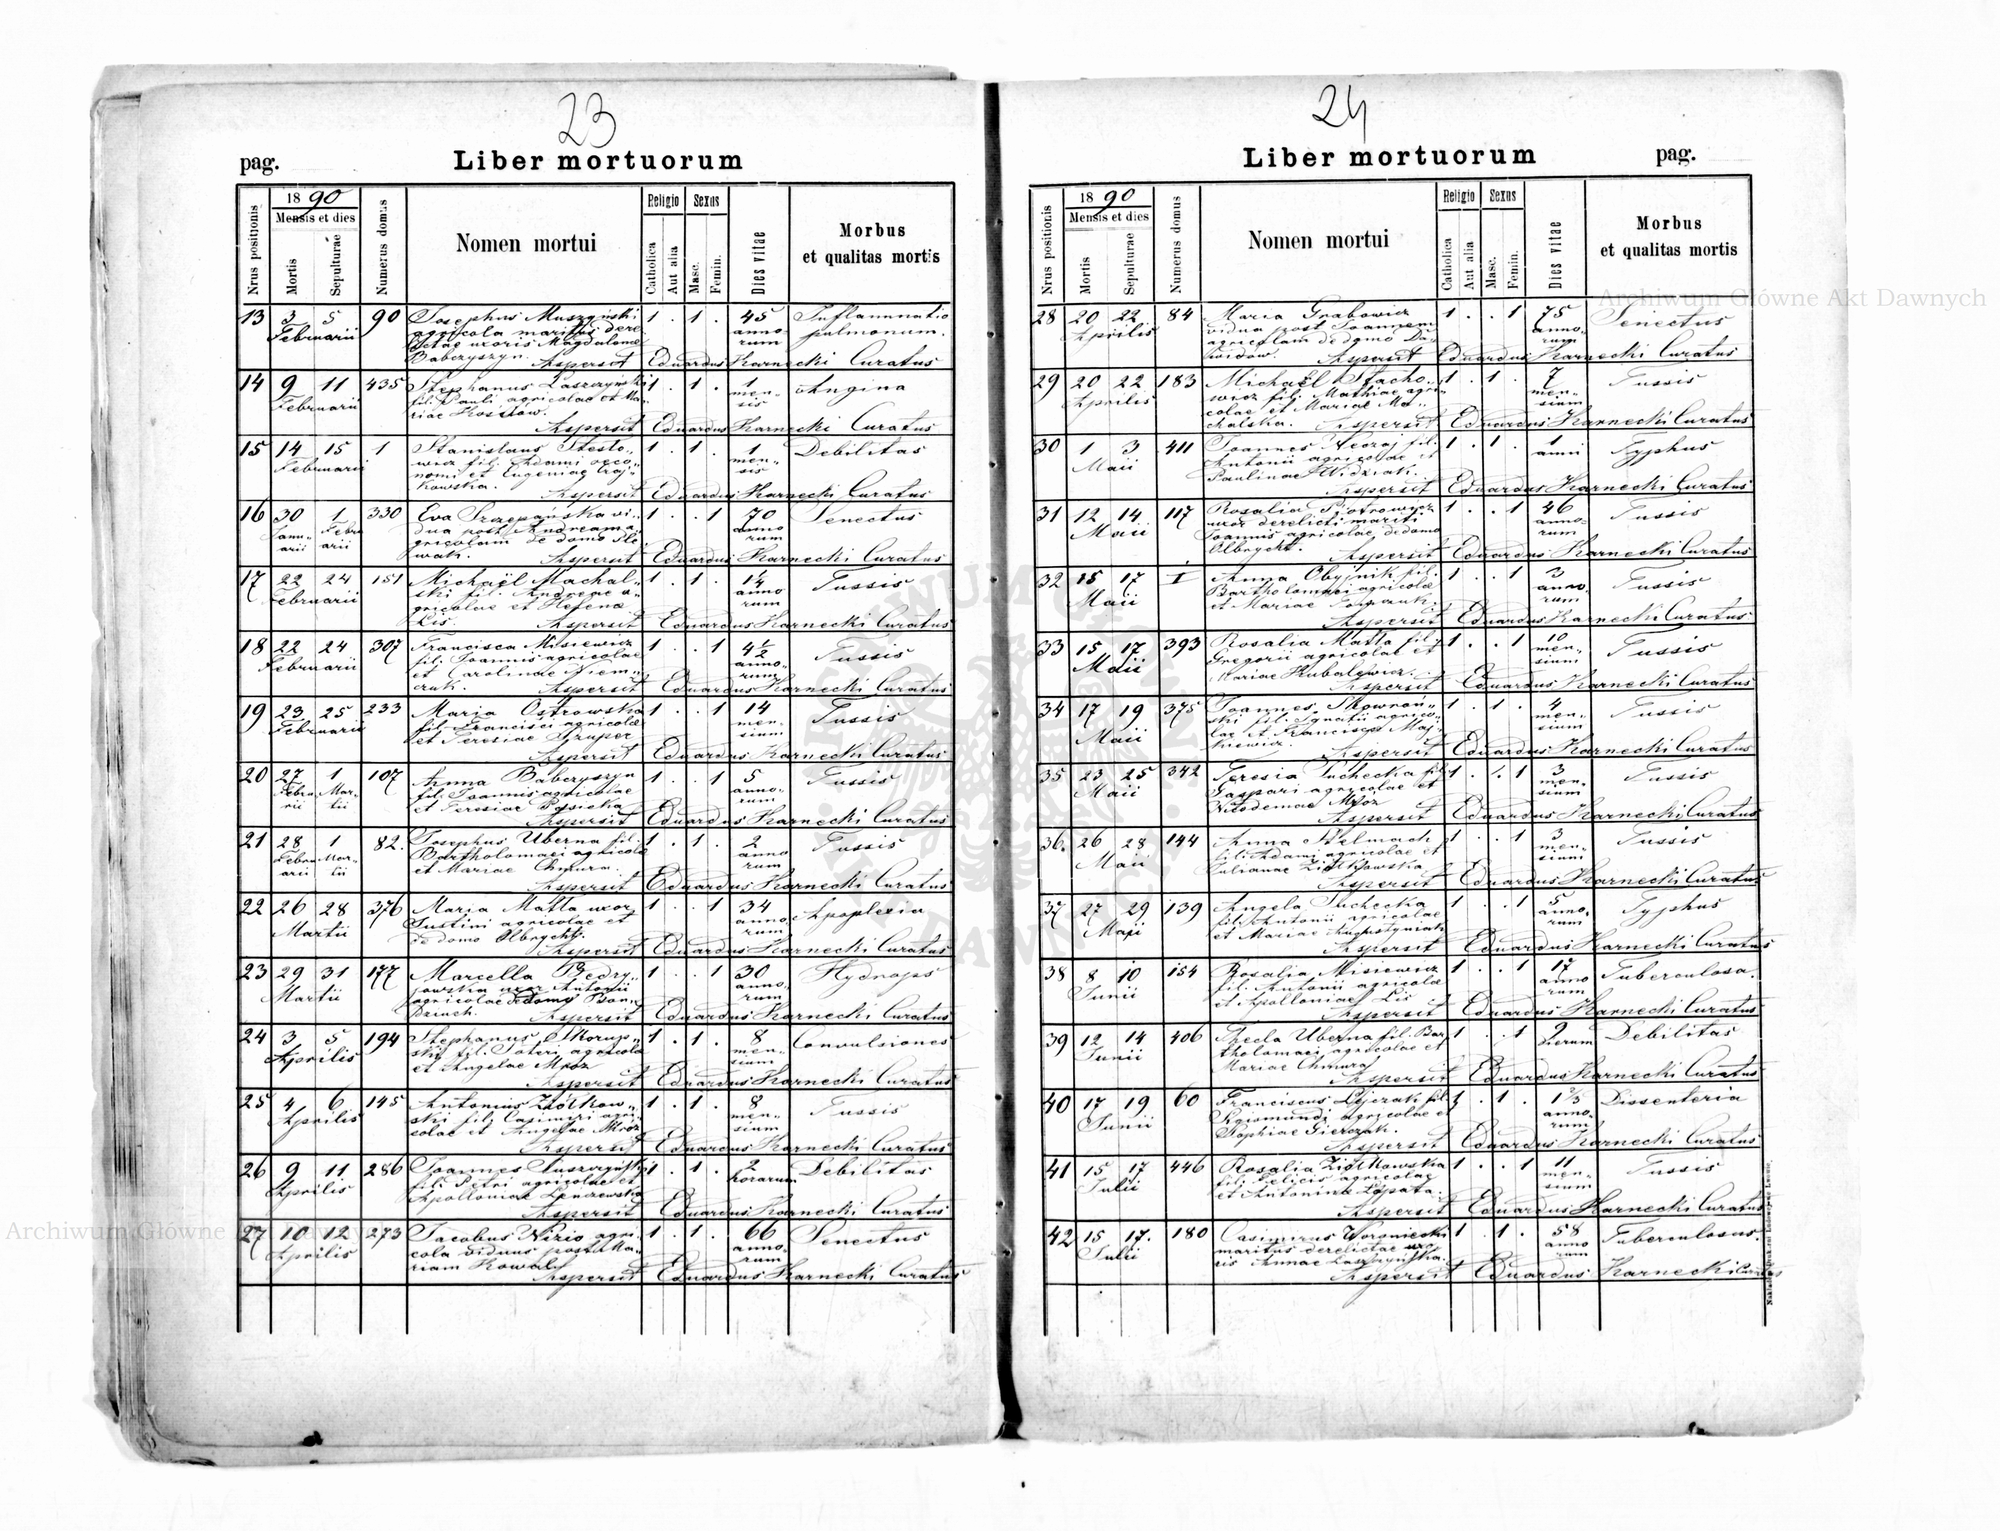 23
pag.
Liber mortuorum
Nrus positionis
1890
Mensis et dies
Mortis
Sepulturae
Numerus domus
Nomen mortui
Religio
Catholica
Aut alia
Sexus
Masc.
Femin.
Dies vitae
Morbus
et qualitas mortis
13 3 5 90 Josephus Muszyński 1 . 1 . 45 Inflammatio
Februarii agricola maritus dere- anno- pulmonum.
lictae uxoris Magdalenae rum
Babczyszyn. Aspersit Eduardus Karnecki Curatus
14 9 11 435 Stephanus Laszczyński 1 . 1 . 1 Angina
Februarii fil. Pauli agricolae et Ma- men-
riae Kossiow. sis
Aspersit Eduardus Karnecki Curatus
15 14 15 1 Stanislaus 1 . 1 . 1 Debilitas
Februarii wicz fil. Adami oeco- men-
nomi et Eugeniae sis
kowska. Aspersit Eduardus Karnecki Curatus
16 30 1 330 Eva Szczepańska vi- 1 . . 1 70 Senectus
Janu- Febru dua post Andream a- anno
arii arii gricolam de domo Sle- rum
wak. Aspersit Eduardus Karnecki Curatus
17 22 24 151 Michaël Machal- 1 . 1 . 1/4 Tussis
Februarii ski fil. Andreae a- anno
gricolae et Helenae rum
Lis. Aspersit Eduardus Karnecki Curatus
18 22 24 307 Francisca Misiewicz 1 . . 1 4½ Tussis
Februarii fil. Joannis agricolae anno-
et Carolinae Niem- rum
czuk. Aspersit Eduardus Karnecki Curatus
19 23 25 233 Maria Ostrowska 1 . . 1 14 Tussis
Februarii fil. Francisci agricolae men-
et Teresiae Gruper sium
Aspersit Eduardus Karnecki Curatus
20 27 1 107 Anna Babczyszyn 1 . . 1 5 Tussis
Febru- Mar- fil. Joannis agricolae anno-
rii tii et Teresiae Posicka rum
Aspersit Eduardus Karnecki Curatus
21 28 1 82. Josephus Uberna fil. 1 . 1 . 2 Tussis
Febru Mar- Bartholomaei agricolae anno
arii tii et Mariae Chmura. rum
Aspersit Eduardus Karnecki Curatus
22 26 28 376 Maria Matta uxor 1 . . 1 34 Apoplexia
Martii Justini agricolae et anno
de domo Olbrycht. rum
Aspersit Eduardus Karnecki Curatus
23 29 31 177 Marcella Bedry- 1 . . 1 30 Hydrops
Martii jowska uxor Antonii anno-
agricolae de domo Bon- rum
dziuch. Aspersit Eduardus Karnecki Curatus
24 3 5 194 Stephanus Skorup- 1 . 1 . 8 Convulsiones
Aprilis ski fil. Petri agricolae men-
et Angelae Mróz sium
Aspersit Eduardus Karnecki Curatus
25 4 6 145 Antonius Ziółkow- 1 . 1 . 8 Tussis
Aprilis ski fil. Casimiri agri- men-
colae et Angelae Mróz sium
Aspersit Eduardus Karnecki Curatus
26 9 11 286 Joannes Laszczyński 1 . 1 . 2 Debilitas
Aprilis fil. Petri agricolae et horarum
Apolloniae Lenczewska
Aspersit Eduardus Karnecki Curatus
27 10 12 273 Jacobus Nizio agri- 1 . 1 . 66 Senectus
Aprilis cola viduus post Ma- anno-
riam Kowal rum
Aspersit Eduardus Karnecki Curatus
24
Liber mortuorum
pag.
Nrus positionis
1890
Mensis et dies
Mortis
Sepulturae
Numerus domus
Nomen mortui
Religio
Catholica
Aut alia
Sexus
Masc.
Femin.
Dies vitae
Morbus
et qualitas mortis
28 20 22 84 Maria Grabowicz 1 . . 1 75 Senectus
Aprilis vidua post Joannem anno-
agricolam de domo Da- rum
widow. Aspersit Eduardus Karnecki Curatus
29 20 22 183 Michaël Stacho- 1 . 1 . 7 Tussis
Aprilis wicz fil. Mathiae agri- men-
colae et Mariae Ma- sium
kalska. Aspersit Eduardus Karnecki Curatus
30 1 3 411 Joannes Neczaj fil. 1 . 1 . 1 Typhus
Maii Antonii agricolae et anni
Paulinae Widziak.
Aspersit Eduardus Karnecki Curatus
31 12 14 117 Rosalia Piotrowicz 1 . . 1 46 Tussis
Maii uxor derelicti mariti anno-
Joannis agricolae de domo rum
Olbrycht. Aspersit Eduardus Karnecki Curatus
32 15 17 I Anna Obyjnik fil. 1 . . 1 3 Tussis
Maii Bartholomaei agricolae anno-
et Mariae rum
Aspersit Eduardus Karnecki Curatus
33 15 17 393 Rosalia Matta fil. 1 . . 1 10 Tussis
Maii Gregorii agricolae et men-
Mariae Kubalewicz. sium
Aspersit Eduardus Karnecki Curatus
34 17 19 375 Joannes Skowroń- 1 . 1 . 4 Tussis
Maii ski fil. Ignatii agrico- men-
lae et Franciscae Maj- sium
kiewicz. Aspersit Eduardus Karnecki Curatus
35 23 25 342 Teresia Suchecka fil. 1 . . 1 3 Tussis
Maii Gaspari agricolae et men-
Nicodemae Mróz sium
Aspersit Eduardus Karnecki Curatus
36. 26 28 144 Anna Helmach 1 . . 1 3 Tussis
Maii fil. Adami agricolae et men-
Julianae Ziółkowska sium
Aspersit Eduardus Karnecki Curatus
37 27 29 139 Angela Suchecka 1 . . 1 5 Typhus
Maii fil. Antonii agricolae anno-
et Mariae Augustyniak rum
Aspersit Eduardus Karnecki Curatus
38 8 10 154 Rosalia Misiewicz 1 . . 1 17 Tuberculosa.
Junii fil. Antonii agricolae anno
et Apolloniae Lis rum
Aspersit Eduardus Karnecki Curatus
39 12 14 406 Thecla Uberna fil. Bar- 1 . . 1 9 Debilitas
Junii tholomaei agricolae et dierum
Mariae Chmura
Aspersit Eduardus Karnecki Curatus
40 17 19 60 Franciscus fil. 1 . 1 . Dissenteria
Junii Sigismundi agricolae et anno-
Sophiae Gierczak. rum
Aspersit Eduardus Karnecki Curatus
41 15 17 446 Rosalia Ziółkowska 1 . . 1 11 Tussis
Julii fil. Felicis agricolae men-
et Antoninae Łopata. sium
Aspersit Eduardus Karnecki Curatus
42 15 17. 180 Casimirus Woroniecki 1 . 1 . 58 Tuberculosus.
Julii maritus derelictae uxo- anno
ris Annae Laszczyńska. rum
Aspersit Eduardus Karnecki Curatus
Archiwum Główne Akt Dawnych
Archiwum Główne Akt Dawnych
ARCHIWUM GŁÓWNE AKT DAWNYCH